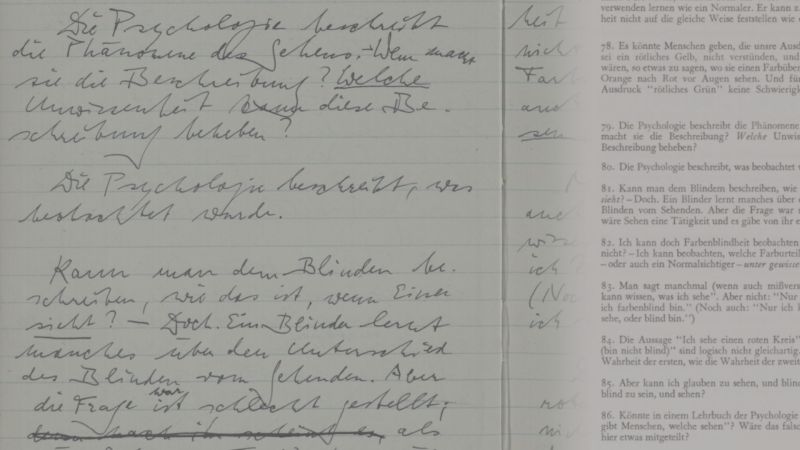 Die Psychologie beschreibt
die Phänomene des Sehens. – Wem macht
sie die Beschreibung? Welche
Unwissenheit kann diese Be-
schreibung beheben?
Die Psychologie beschreibt, was
beobachtet wurde.
Kann man dem Blinden be-
schreiben, wie das ist, wenn Einer
sieht? – Doch. Ein Blinder lernt
manches über den Unterschied
des Blinden vom Sehenden. Aber
die Frage war schlecht gestellt;
als
heit
nich
Farb
auch
sen
auch
wiss
ich
(Noc
ich
nic
verwenden lernen wie ein Normaler. Er kann z.
heit nicht auf die gleiche Weise feststellen wie
78. Es könnte Menschen geben, die unsre Ausd
sei ein rötliches Gelb, nicht verstünden, und
wären, so etwas zu sagen, wo sie einen Farbüber
Orange nach Rot vor Augen sehen. Und für
Ausdruck “rötliches Grün” keine Schwierigk
79. Die Psychologie beschreibt die Phänomene
macht sie die Beschreibung? Welche Unwis
Beschreibung beheben?
80. Die Psychologie beschreibt, was beobachtet w
81. Kann man dem Blindem beschreiben, wie
sieht? – Doch. Ein Blinder lernt manches über d
Blinden vom Sehenden. Aber die Frage war s
wäre Sehen eine Tätigkeit und es gäbe von ihr e
82. Ich kann doch Farbenblindheit beobachten
nicht? – Ich kann beobachten, welche Farburteil
– oder auch ein Normalsichtiger – unter gewisse
83. Man sagt manchmal (wenn auch mißvers
kann wissen, was ich sehe”. Aber nicht: “Nur i
ich farbenblind bin.” (Noch auch: “Nur ich k
sehe, oder blind bin.”)
84. Die Aussage “Ich sehe einen roten Kreis”
(bin nicht blind)” sind logisch nicht gleichartig.
Wahrheit der ersten, wie die Wahrheit der zweit
85. Aber kann ich glauben zu sehen, und blind
blind zu sein, und sehen?
86. Könnte in einem Lehrbuch der Psychologie
gibt Menschen, welche sehen”? Wäre das falsc
hier etwas mitgeteilt?